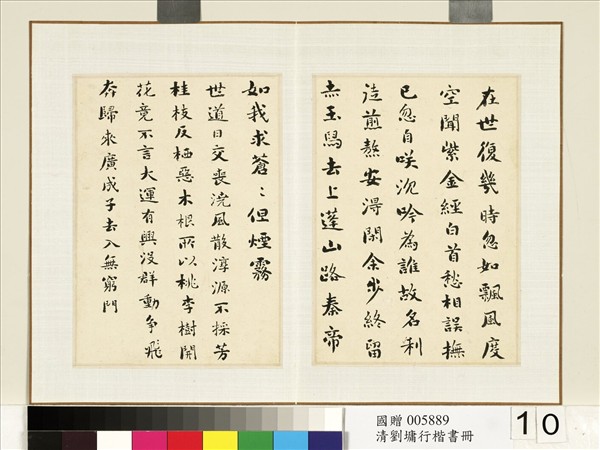 在世復幾時忽如飄風度
空聞紫金經白首愁相誤撫
已忽自咲沉吟為誰故名利
徒煎熬安得閑余步終留
赤玉舄去上蓬山路秦帝
如我求蒼〻但煙霧
世道日交喪澆風散淳源不採芳
桂枝反栖惡木根所以桃李樹開
花竟不言大運有興沒群動争飛
奔歸來廣成子去入無窮門
國贈 005889
清劉墉行楷書冊
10